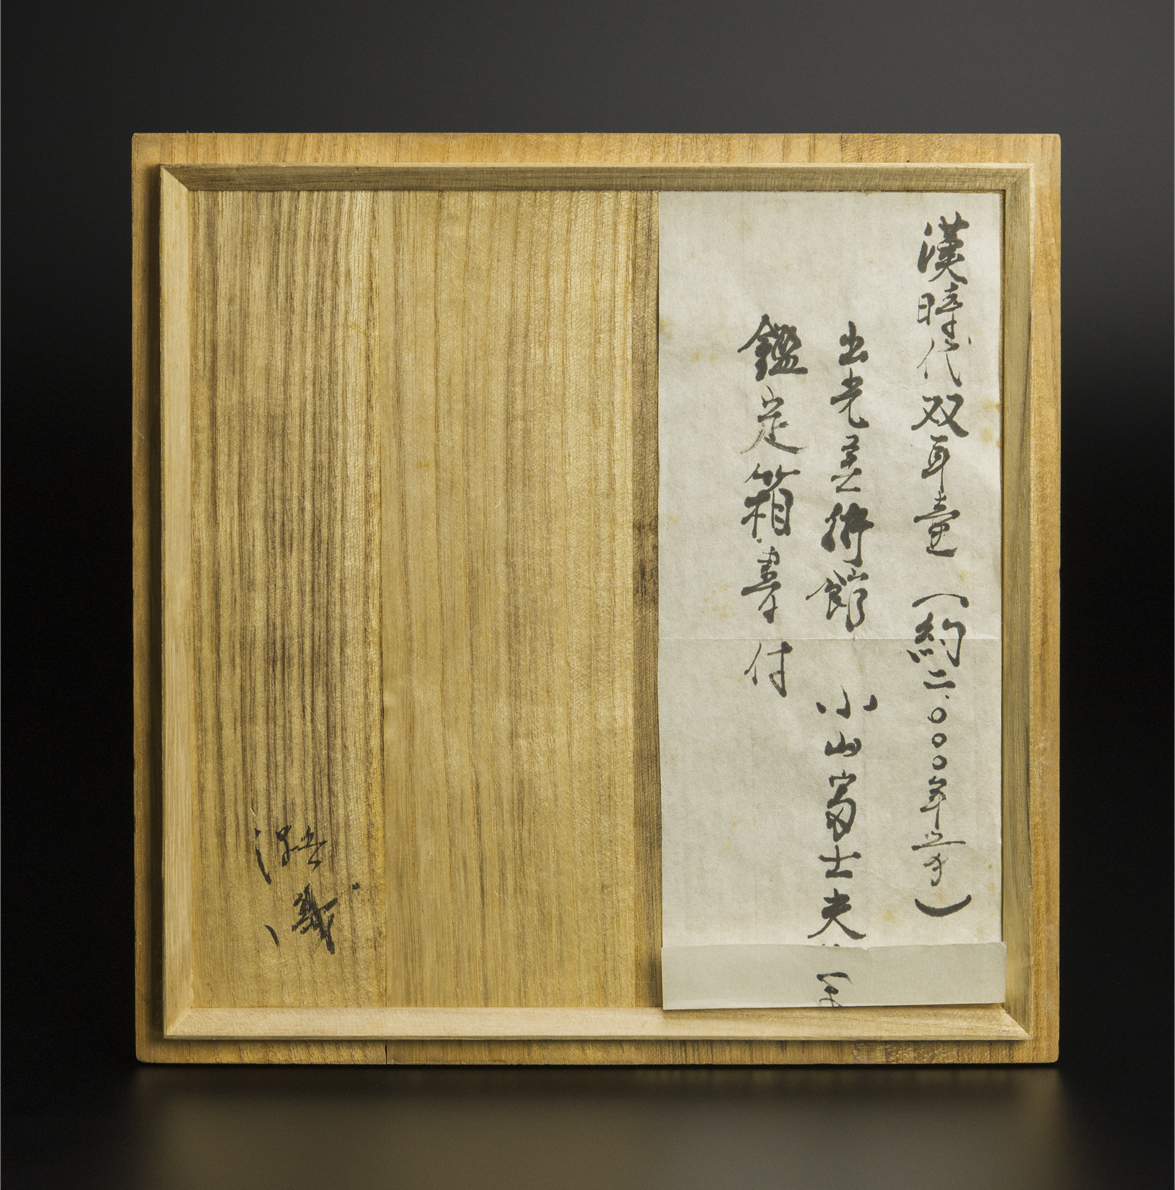 漢時代双耳壷（約二.〇〇〇年前）
出光美術館 小山冨士夫
鑑定箱書付